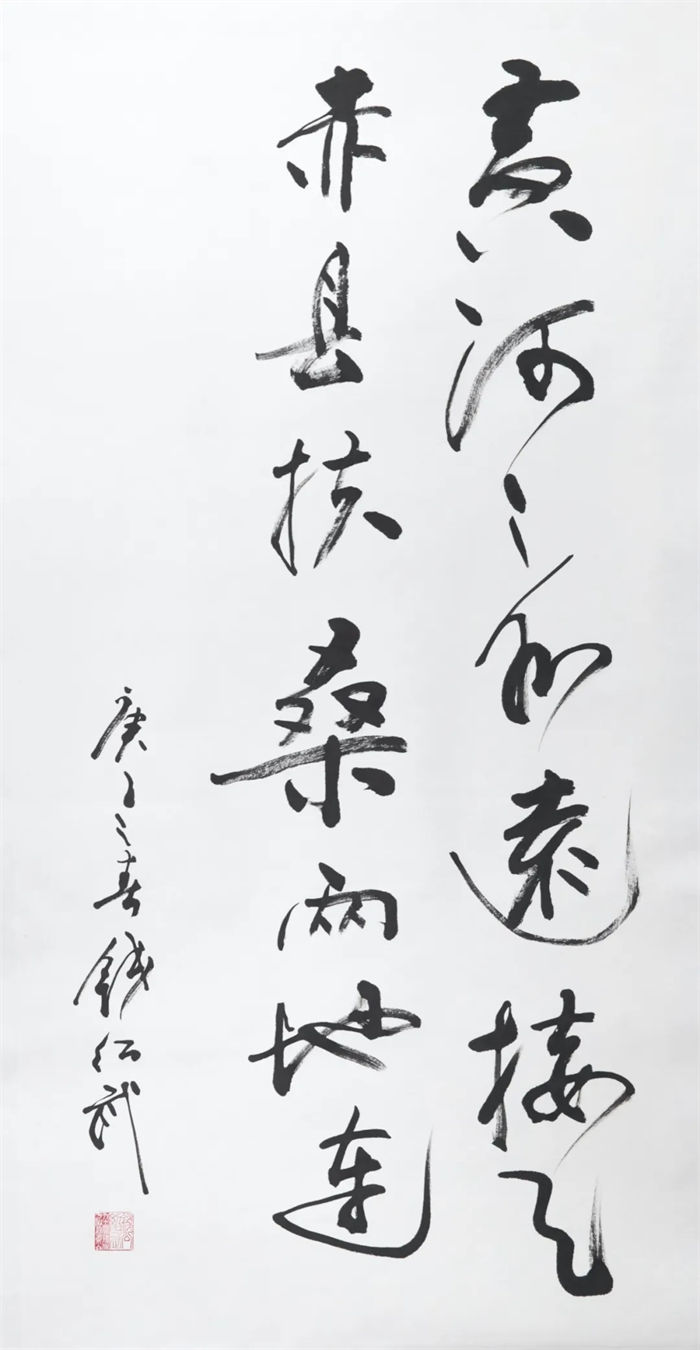 黄河之水遠接天
赤县扶桑两地连
庚子之春 钱绍武